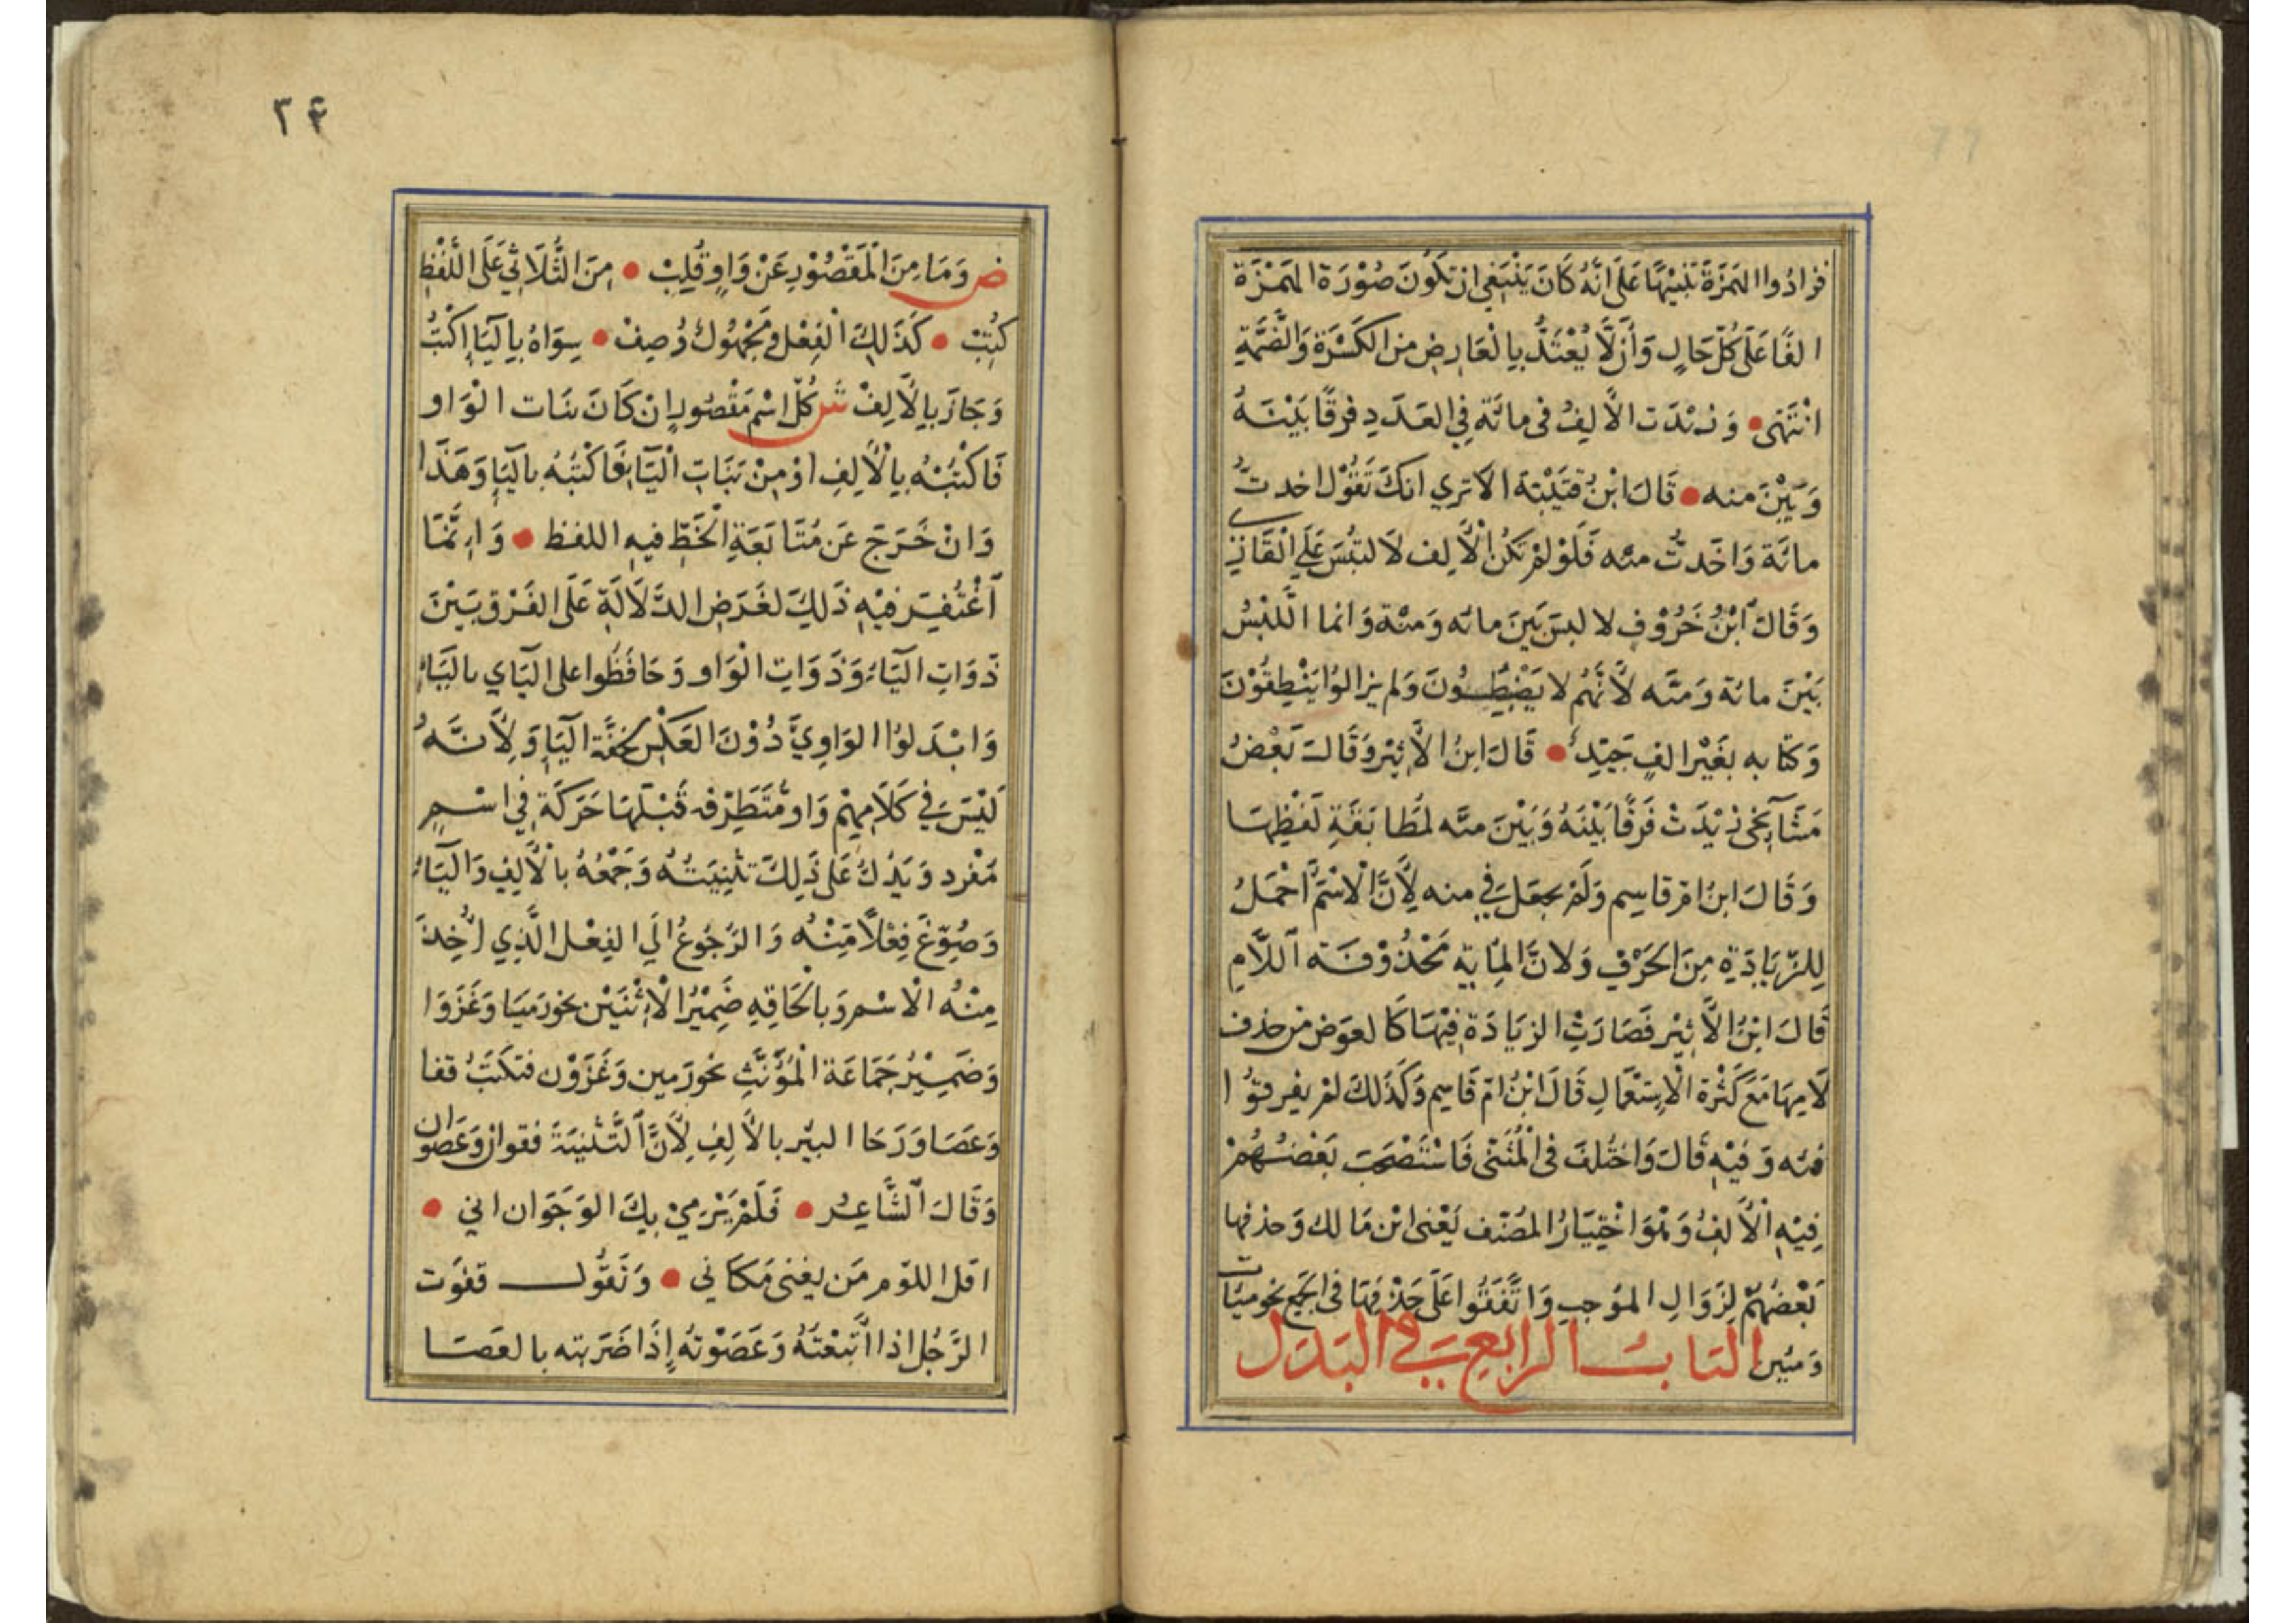 فزادوا الهَمزَةَ تَنبِيْهًا عَلَى انَّهُ كَانَ يَنْبَغِي انْ تكُونَ صُوْرَة الهَمْزَة
الفًا عَلَى كُلّ حَالٍ وَأنْ لَّا يُعْتَدُّ بِالْعَارِضِ من الكَسْرَة وَالضَّمَّةِ
انْتَهَى • وَزيْدَت الاَلِفُ فى مائَة فِي العَدَدِ فرقًا بَيْنَهُ
وَبَيْنَ منه • قَالَ ابْنُ قتَيْبَة الَا تري انكَ تَقُوْل اخدتُ
مائَة وَاخَدتُّ منْه فَلَوْ لَمْ تكُن الْاَلِف لَالتبُسَ عَلَي الْقَارِي
وَقَالَ ابْنُ خَرُوْفٍ لا لبسَ بَيْنَ مائه وَمنْة وَانما اللبْسُ
بَيْنَ مائة وَمنَّه لاَنَّهُم لا يَضْبِطُونَ وَلم يزالوُا يَنْطِقُوْنَ
وَكتابه بغَيْر الفٍ جَيّدٍ • قَالَ ابنُ الاَثِيْر وَقَالَ بَعْضُ
مَشَايخى زيْدَتْ فَرقًا بَيْنَهُ وَبَيْنَ منَّه لمُطَابَقَةِ لَفْظِهَا
وَقَالَ ابنُ امّ قاسِم وَلَمْ يجعَلْ فِي منه لِاَنَّ الْاسْمَ احْمَلُ
لِلزِّيَادَةِ مِنَ الحَرْفِ وَلانَّ المِايَة مَحْذُوْفَة اللَّامِ
قَالَ ابْنُ الاَثِيْر فَصَارَتْ الزيَادَة فِيْهَا كَالعوَض من حذف
لَامِهَا مَعَ كَثْرة الْاِستعْمَالِ قَالَ ابْنُ امّ قَاسِم وَكَذَلكَ لَمْ يفرقوُا
فئه وَفيْهِ قَالَ وَاختُلفَ فى الْمُثَنى فَاسْتَصْحَبَ بَعْضُهُمْ
فِيْهِ الْاَلفُ وَهُوَ اخْتِيَارُ المصَنف يَعْنى ابْن مَالك وَحذفها
بَعْضهُمْ لِزَوَالِ الموُجبِ وَاتَّفَقُوا عَلَى حَذْفِهَا فى الجَمع نحو ميَات
وَمئين البَابُ الرابِع فِي البَدَل
٣٤
ص وَمَا مِنَ الْمَقْصُوْرِ عَنْ وَاوٍ قُلِبْ • مِنَ الثُّلَاثِي عَلَى اللَّفْظِ
كُتِبْ • كَذَلِكَ الْفِعْل وَمَجْهُولٌ وُصِفْ • سِوَاهُ بِاليَا اِكْتُبْ
وَجَازَ بِالاَلِفْ ش كُلّ اسْم مَقْصُورٍ انْ كَانَ بنَات الْوَاو
فَاكْتبْهُ بِالْاَلِفِ اوْ مِنْ بَنَاتِ الْيَا فَاكْتُبْهُ بِاليَا وَهَذَا
وَانْ خَرَجَ عَن مُتَابَعَةِ الْخَطِّ فيهِ اللفظ • وَاِنَّمَا
اَغْتُفِرَ فيْهِ ذَلِكَ لغَرَضِ الدَّلَالَةِ عَلَى الفَرْقِ بَيْنَ
ذَوَاتِ اليَاء وَذَوَاتِ الْوَاو وَحَافَظُوا على اليَاي بالْيَاءِ
وَابْدَلوُا الوَاوِيَّ دُوْنَ العَكْسِ لخفَّة اليَا وَلِاَنَّهُ
لَيْسَ في كَلَامِهِمْ وَاو مُّتَطَرِّفه قَبْلَهَا حَرَكَة في اسْمٍ
مَفْرد وَيَدُلُّ عَلَى ذَلِكَ تثْنِيَتُهُ وَجَمْعُهُ بالْاَلِفِ وَاليَاء
وَصُوِّغَ فِعْلًا مّنْهُ وَالرّجُوعُ الَي الفِعْل الَّذِي اُخِذَ
مِنْهُ الْاسْم وَبالْحَاقِهِ ضَمِيْرُ الْاِثْنَيْن نحو رَميَا وَغَزَوَا
وَضَمِيْرُ جَمَاعَة الْمُؤَنَّثِ نحو رَمين وَغَزَوْن فتكتَبُ قفا
وَعَصَا وَرَحَا البيْر بالاَلِفِ لِاَنَّ التَّثنيَةَ فقوان وَعَصَوان
وَقَالَ الشَّاعِرُ • فَلَمْ يَرْميْ بِكَ الوَجَوَان اني •
اقل اللوم مَن يغنى مَكاني • وَتَقُولُ قفوَت
الرَّجُل اذا اتَّبعْتَهُ وَعَصَوْتهُ اِذَا ضَرَبته بالعَصَا